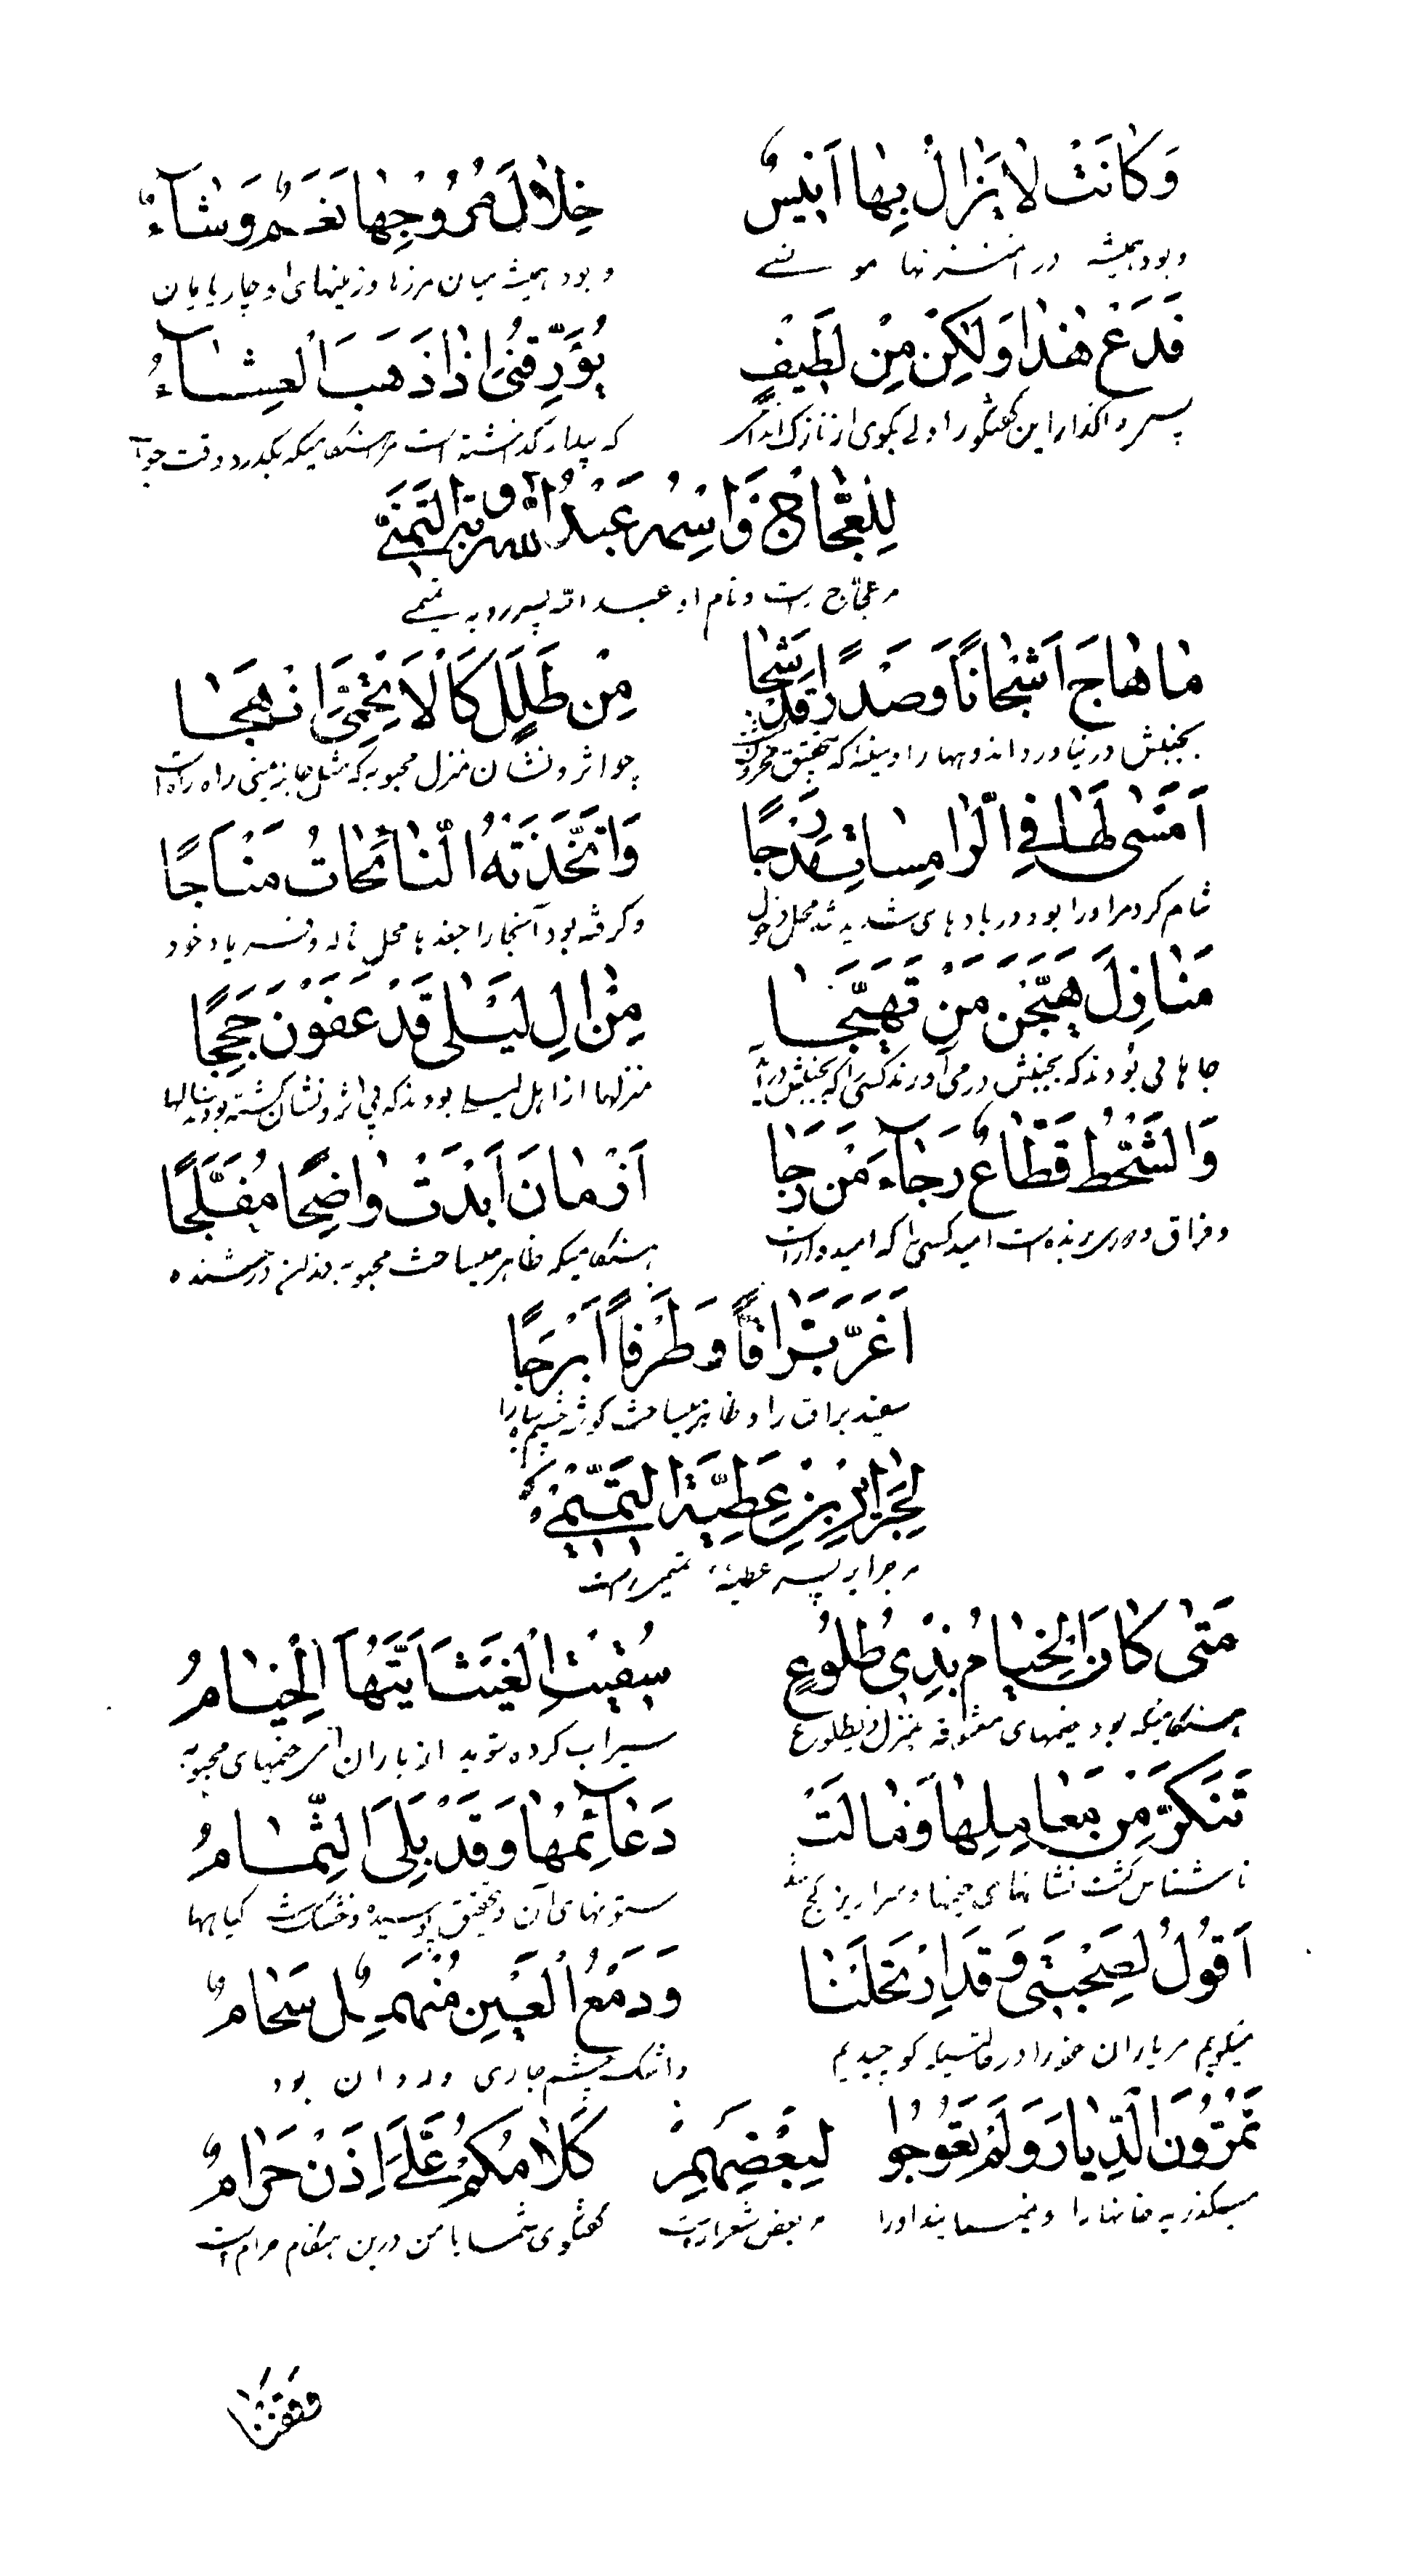 وَكانَتْ لايَزالُ بِها اَنيسٌ خِلالَ مُرُوجِها نَعَمٌ وَشآءٌ
و بود همیشه در منزلها مونسی و بود همیشه میان مرزها و زمینهای او چارپایان
فَدَعْ هٰذا وَلٰكِنْ مِنْ لَطيفٍ يُؤَرِّقُنى اِذا ذَهَبَ الْعِشآءُ
پس واگذار این گفتگو را ولی بگوی از نازک اندام که بیدار گذاشته است مرا هنگامیکه بگذرد وقت
لِلْعَجّاجِ وَاسْمُهُ عَبْدُ اللّٰهِ التَميمى
مر عجّاج راست و نام او عبد الله پسر روبه تمیمی
ما هاجَ اَشْجاناً وَصَدْراً قَدْ شَجا مِنْ طَلَلٍ كَالْاَتْحَمِىِّ اَنْهَجا
بجنبش در نیاورد اندوهها را و سینه را که بتحقیق چو اثر و نشان منزل محبوبه که مثل جامه یمنی راه راه
اَمْسٰى لَها فِى الرّامِساتِ مَدْرَجًا وَاتَّخَذَتْهُ النّائِحاتُ مَنْاَجًا
شام کرد مر او را بود در بادهای شدید محل و گرفته بود آنجا را جغدها محل ناله و فریاد خود
مَنازِلَ هَيَّجْنَ مَنْ تَهَيَّجا مِنْ الِ لَيْلى قَدْ عَفَوْنَ حِجَجًا
جاهائی بودند که بجنبش در می آورند کسی را که بجنبش در منزلها از اهل لیلی بودند که بی اثر و نشان گشته بودند سالها
وَالشَّحْطُ قَطّاعٌ رَجآءَ مَنْ رَجا اَزْمانَ اَبْدَتْ واضِحًا مُفَلَّجًا
و فراق و دوری برنده است امید کسی را که امیدوار است هنگامیکه ظاهر میساخت محبوبه دندان درخشنده
اَغَرَّ بَرّاقاً وَطَرْفاً اَبْرَجًا
سفید براق را و ظاهر میساخت گوشه چشم سیاه را
لِجَرايرِ بْنِ عَطِيَّةَ التَّميمْى
مر جرایر پسر عطیه تمیمی راست
مَتٰى كانَ الْخِيامُ بِذِى طُلُوعٍ سُقيتِ الْغَيْثَ اَيَّتُهَا الْخِيامُ
هنگامیکه بود خیمهای معشوقه بمنزل ذیطلوع سیراب کرده شوید از باران ای خیمهای محبوبه
تَنَكَّرَ مِنْ مَعامِلِها وَمالَتْ دَعآئِمُها وَقَدْ بَلِىَ الثُّمامُ
ناشناس گشت نشانهای خیمها و سرازیر کج شد ستونهای آن و بتحقیق پوسیده و خشک گشت گیاهها
اَقُولُ لِصُحْبَتى وَقَدِ ارْتَحَلْنا وَدَمْعُ الْعَيْنِ مُنْهَمِلٌ سَجامٌ
میگویم مر یاران خود را در حالتیکه کوچیدیم و اشک چشم جاری و روان بود
تَمُرُّونَ الدِّيارَ وَلَمْ تَعُوجُوا لِبَعْضِهِمْ كَلامُكُمُ عَلَىَّ اِذَنْ حَرامٌ
میگذرید خانها را و نمی‌ایستانید او را مر بعض شعرا راست گفتگوی شما با من درین هنگام حرام است
وَقَفْنا